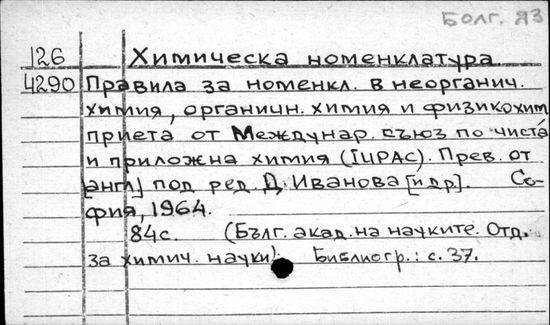 Болг. яз
126 Химическа номенклатура
4290 Правила за номенкл. в неорганич.
химия, органичн. химия и физикохим
приета от Междунар. съюз по чиста
и приложна химия (IUPAC). Прев. от
[англ] под ред. Д. Иванова [и др]. Со-
фия, 1964.
84с. (Бълг. акад. на науките. Отд.
за химич. науки) Библиогр.: с. 37.